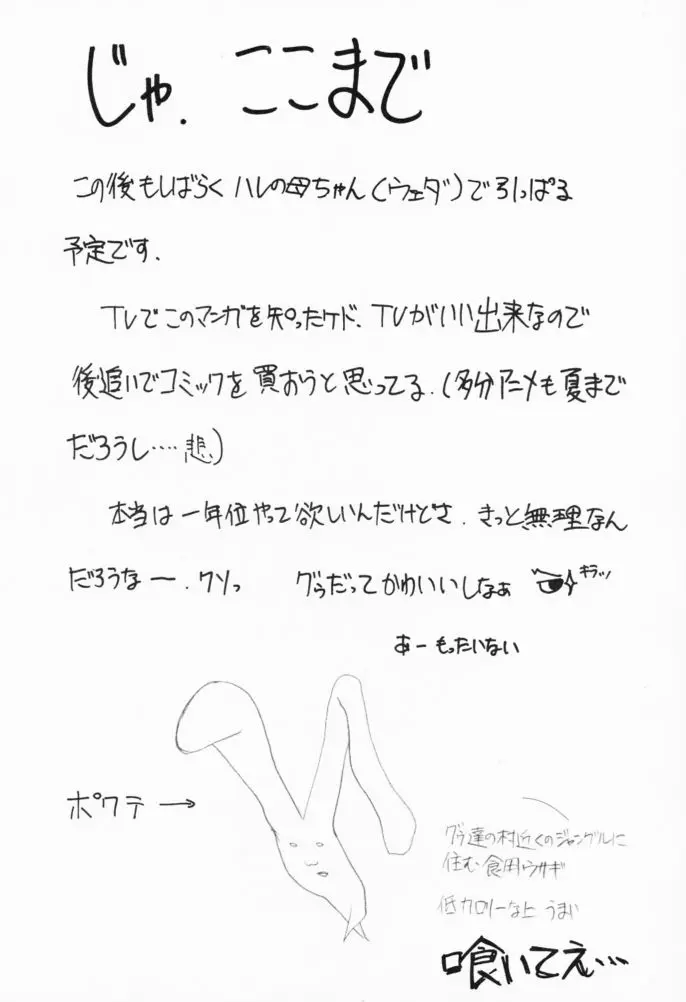 じゃ. ここまで
この後もしばらく ハレの母ちゃん(ウェダ)で引っぱる
予定です.
TVでこのマンガを知ったケド、TVがいい出来なので
後追いでコミックを買おうと思ってる.(多分アニメも夏まで
だろうし‥‥悲)
本当は一年位やって欲しいんだけどさ. きっと無理なん
だろうなー. クソっ グゥだってかわいいしなぁ キラッ
あー もったいない
ポクテ →
グゥ達の村近くのジャングルに
住む食用ウサギ
低カロリーな上 うまい
喰いてえ…